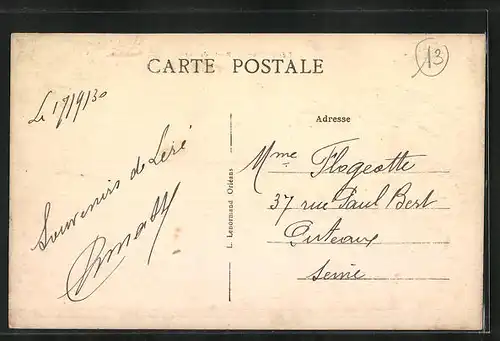 CARTE POSTALE
13
Le 17/9/30
Souvenirs de Léré
Adresse
Mme Flogeotte
37 rue Paul Bert
Puteaux
Seine
L. Lenormand Orléans